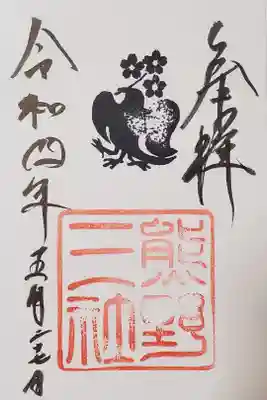 奉拝
熊野
三社
令和四年五月
日